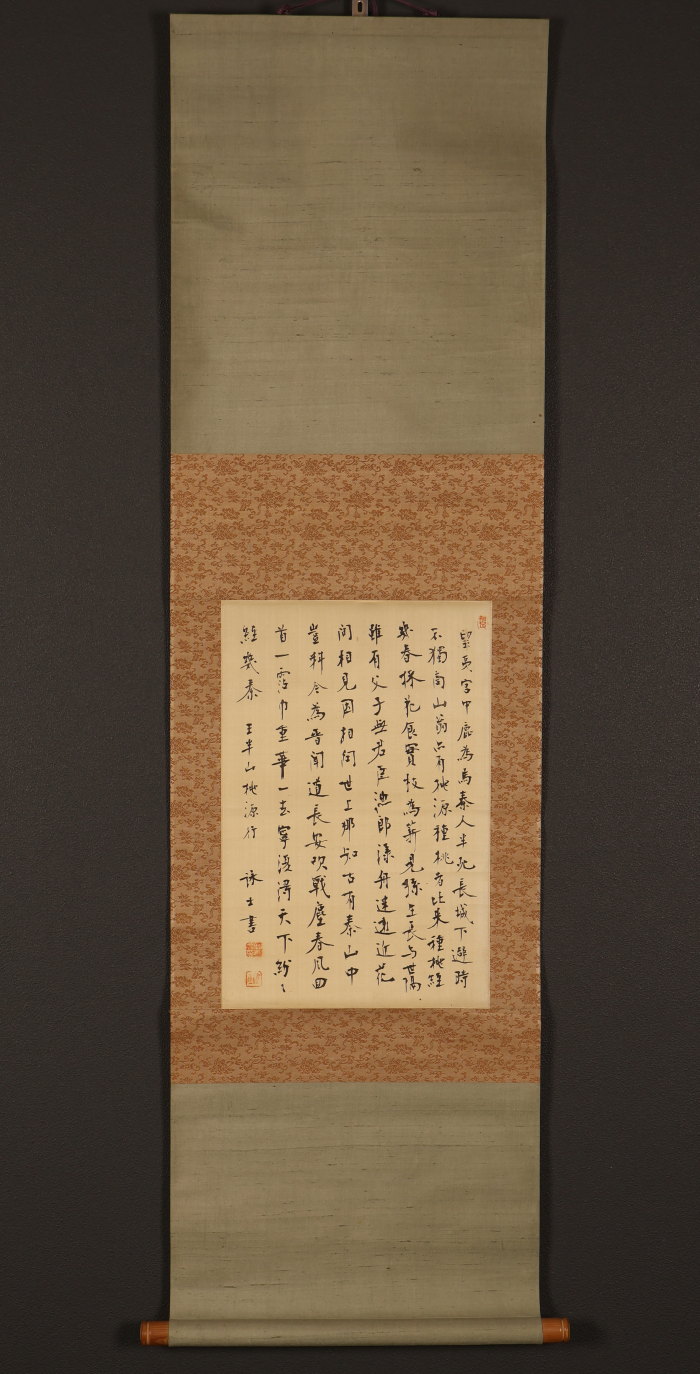 望夷宮中鹿為馬秦人半死長城下避時
不獨商山翁亦有桃源種桃者比来種桃經
幾春採花食實枝為薪兒孫生長与世隔
雖有父子無君臣漁郎漾舟迷遠近花
間相見因相問世上那知古有秦山中
豈料今為晋聞道長安吹戰塵春風回
首一霑巾重華一去寧復得天下紛〻
經幾秦 王半山桃源行 詠士書